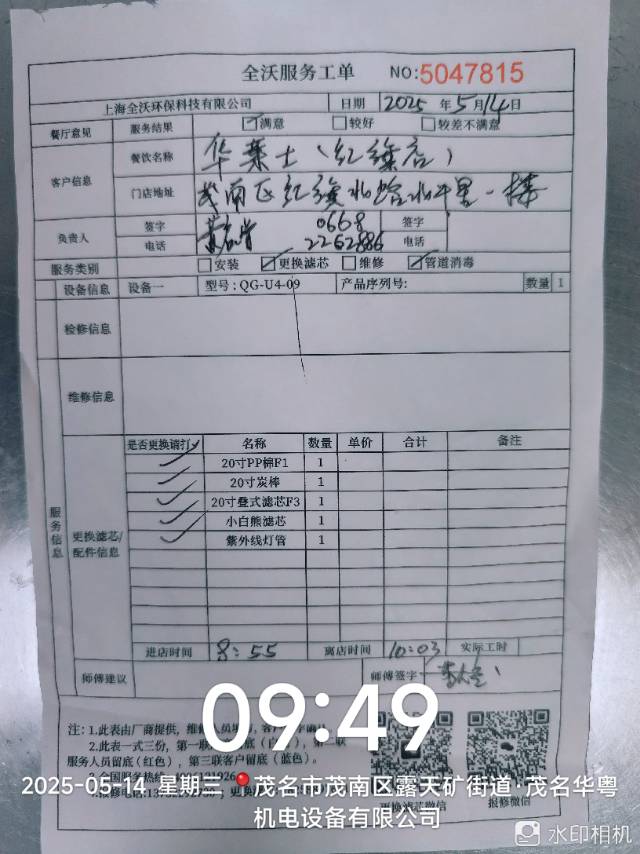 全沃服务工单 NO:5047815
上海全沃环保科技有限公司 日期 2025 年 5 月 14 日
餐厅意见 服务结果 满意 较好 较差不满意
客户信息 餐饮名称 华莱士（红旗店）
门店地址 茂南区红旗北路水
负责人 签字 签字
电话 0668 2262886 电话
服务类别 安装 更换滤芯 维修 管道消毒
服务信息
设备信息 设备一 型号:QG-U4-09 产品序列号: 数量 1
检修信息
维修信息
更换滤芯/配件信息
是否更换请打✓ 名称 数量 单价 合计 备注
✓ 20寸PP棉F1 1
✓ 20寸炭棒 1
✓ 20寸叠式滤芯F3 1
✓ 小白熊滤芯 1
✓ 紫外线灯管 1
进店时间 8:55 离店时间 10:03 实际工时
师傅建议 师傅签字
注:1.此表由厂商提供，维修人员
2.此表一式三份，第一联 底（ ），第二联
服务人员留底(红色)，第三联客户留底（蓝色）。
3.全国服务热线
4.报修电话: 更换
更换滤芯微信 报修微信
09:49
2025-05-14 星期三 茂名市茂南区露天矿街道·茂名华粤
机电设备有限公司
水印相机